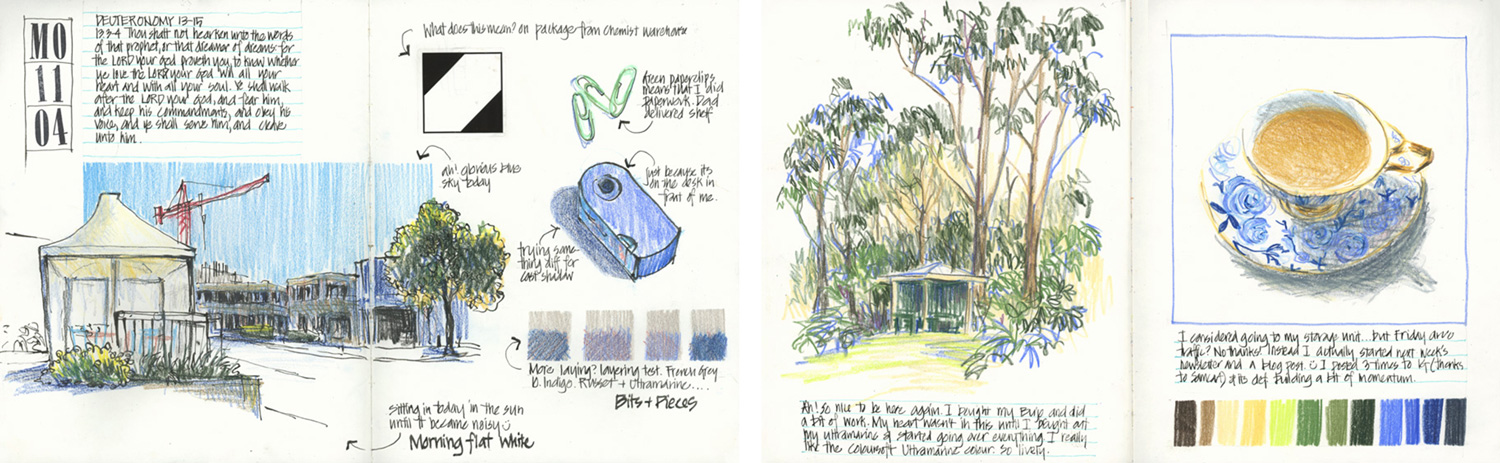 MO
11
04
DEUTERONOMY 13-15
13:3-4 Thou shalt not hearken unto the words
of that prophet, or that dreamer of dreams: for
the LORD your God proveth you, to know whether
ye love the LORD your God with all your
heart and with all your soul. Ye shall walk
after the LORD your God, and fear him,
and keep his commandments, and obey his
voice, and ye shall serve him, and cleave
unto him.
What does this mean? on package from Chemist Warehouse
Green paperclips
means that I did
paperwork. Dad
delivered shelf
ah! glorious blue
sky today
Just because its
on the desk in
front of me.
trying some-
thing diff for
cast shadow
More laying? layering test. French Grey
to Indigo. Russet + Ultramarine....
Bits + Pieces
Sitting in today in the sun
until it became noisy
Morning flat white
Ah! So nice to be here again. I bought my Burp and did
a bit of work. My heart wasn't in this until I bought out
my ultramarine & started going over everything. I really
like the Coloursoft Ultramarine colour. So lively.
I considered going to my storage unit... but Friday arvo
traffic? No thanks! Instead I actually started next week's
newsletter and a blog post. I posted 3-times to (thanks
to) & its def building a bit of momentum.